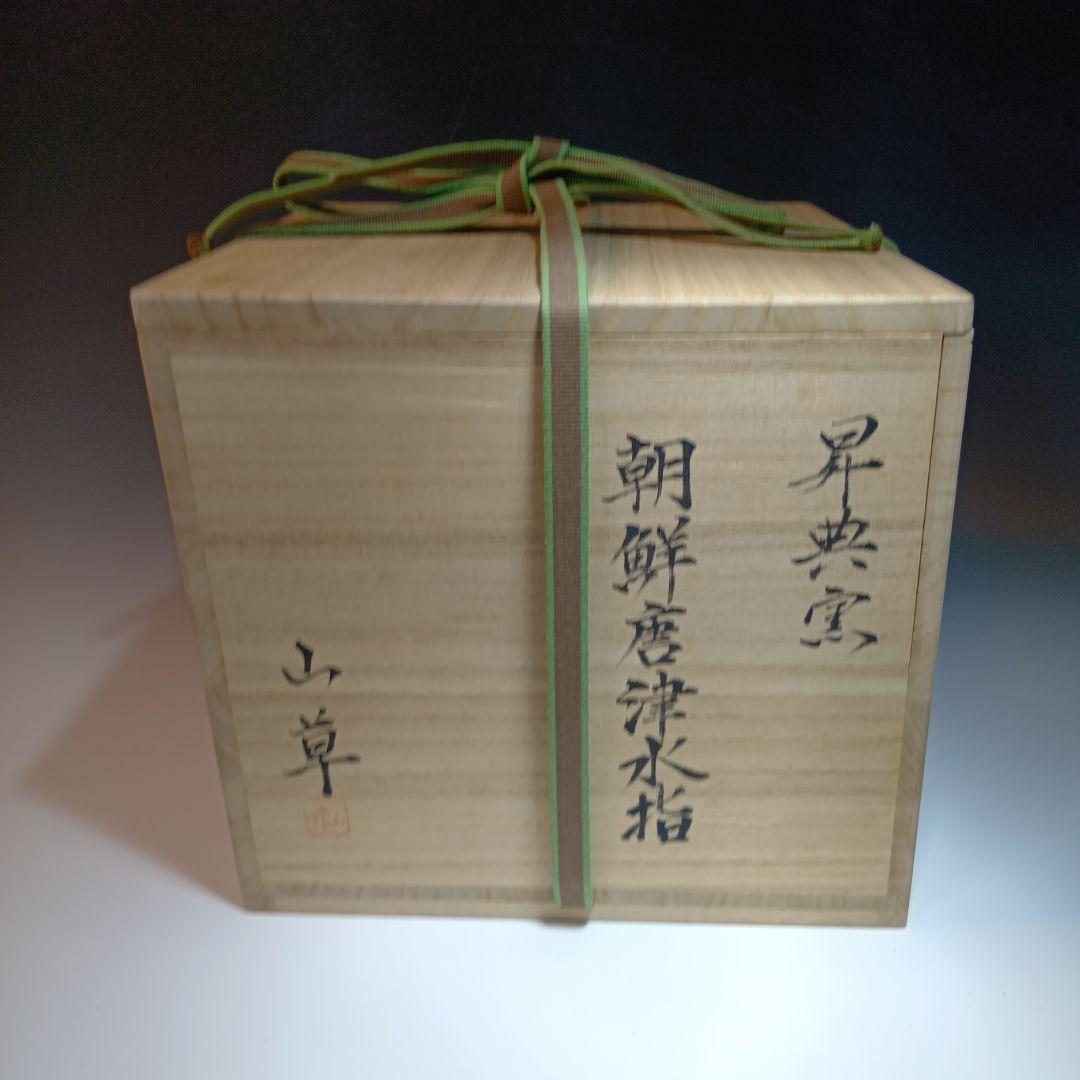 昇典窯
朝鮮唐津水指
山草